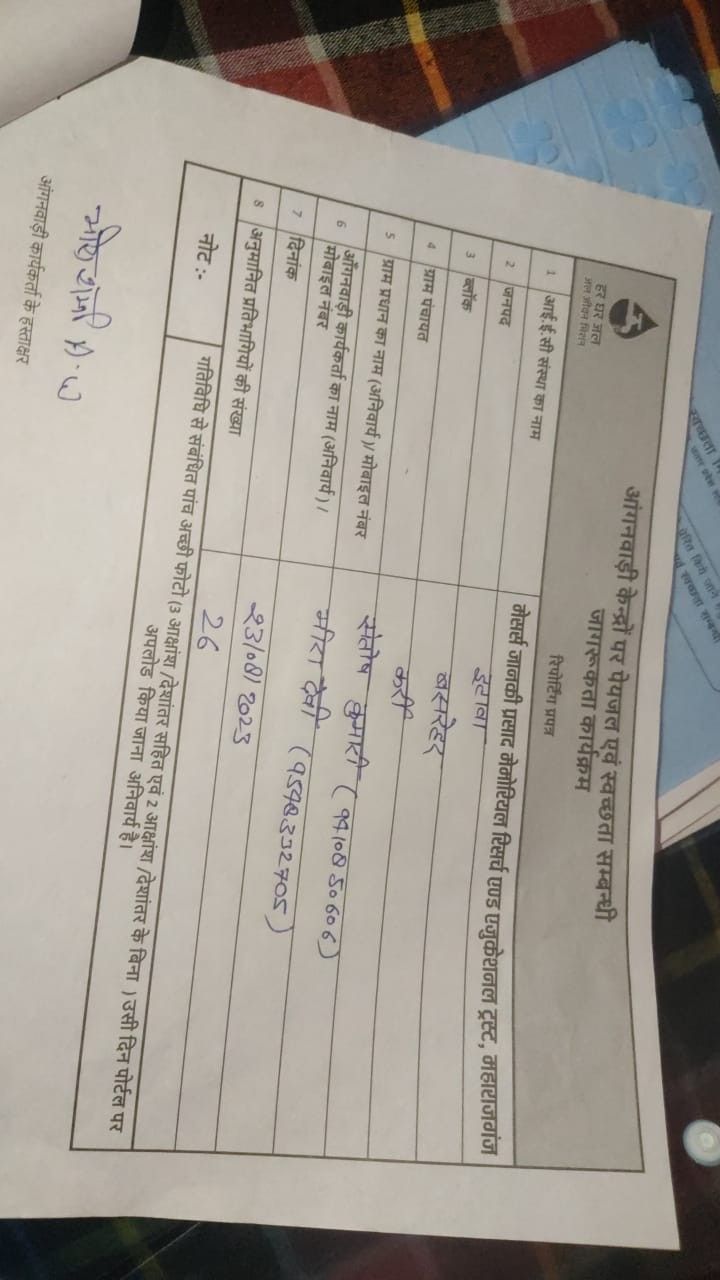 हर घर जल
जल जीवन मिशन
आंगनवाड़ी केन्द्रों पर पेयजल एवं स्वच्छता सम्बन्धी
जागरूकता कार्यक्रम
रिपोर्टिंग प्रपत्र
1 आई.ई.सी संस्था का नाम मेसर्स जानकी प्रसाद मेमोरियल रिसर्च एण्ड एजुकेशनल ट्रस्ट, महाराजगंज
2 जनपद इटावा
3 ब्लॉक बसरेहर
4 ग्राम पंचायत कर्री
5 ग्राम प्रधान का नाम (अनिवार्य)/ मोबाइल नंबर संतोष कुमारी (9410850606)
6 आँगनवाड़ी कार्यकर्ता का नाम (अनिवार्य) / मीरा देवी (9598332705)
मोबाइल नंबर
7 दिनांक 23/08/2023
8 अनुमानित प्रतिभागियों की संख्या 26
नोट :- गतिविधि से संबंधित पांच अच्छी फोटो (3 आक्षांश /देशांतर सहित एवं 2 आक्षांश /देशांतर के बिना ) उसी दिन पोर्टल पर
अपलोड किया जाना अनिवार्य है।
आंगनवाड़ी कार्यकर्ता के हस्ताक्षर
स्वच्छता